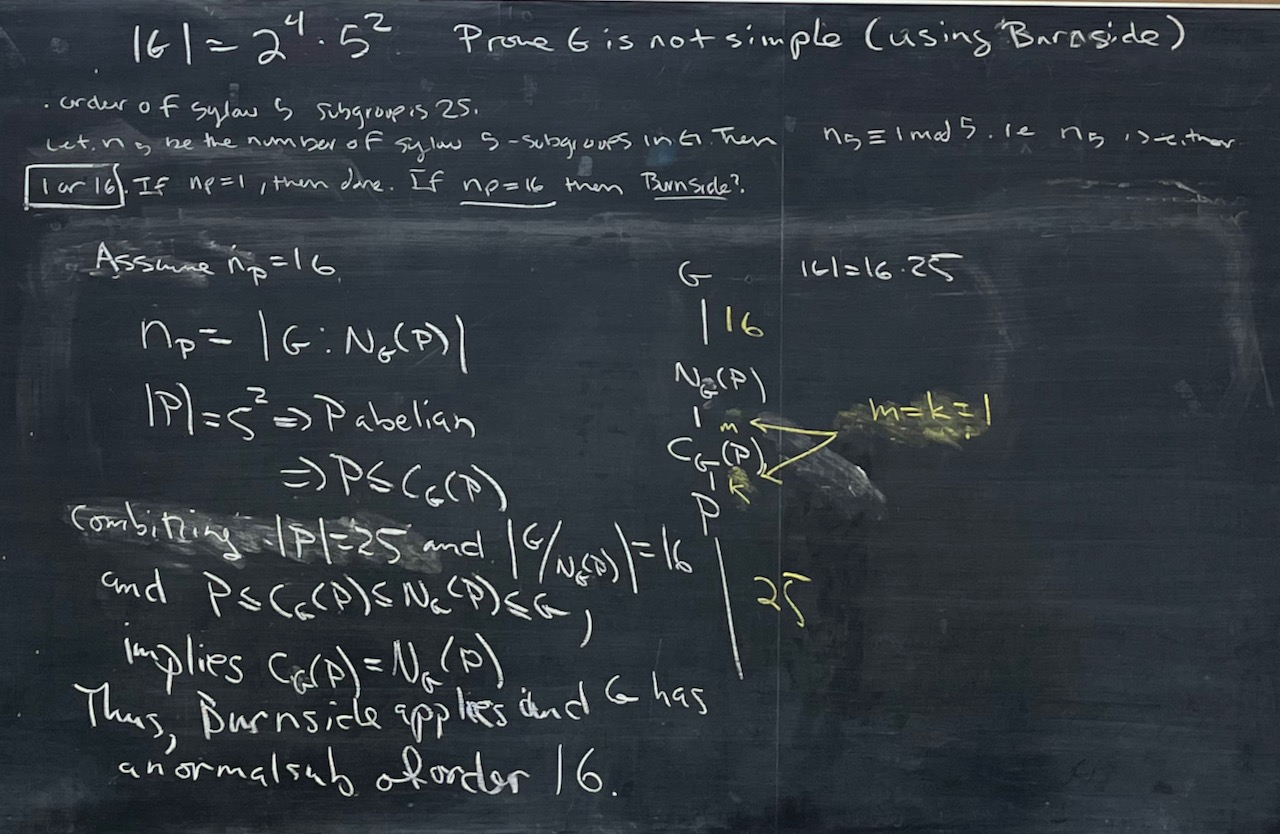 |G| = 2⁴ · 5² Prove G is not simple (using Burnside)
· order of sylow 5 subgroup is 25.
Let n₅ be the number of sylow 5-subgroups in G. Then n₅ ≡ 1 mod 5. ie n₅ is either
1 or 16. If nₚ=1, then done. If nₚ=16 then Burnside?
Assume nₚ=16.
nₚ = |G : N_G(P)|
|P| = 5² ⇒ P abelian
⇒ P ≤ C_G(P)
Combining |P|=25 and |G/N_G(P)| = 16
and P ≤ C_G(P) ≤ N_G(P) ≤ G,
implies C_G(P) = N_G(P)
Thus, Burnside applies and G has
a normal sub of order 16.
G |G| = 16·25
| 16
N_G(P)
| m m=k=1
C_G(P)
|
P
| 25